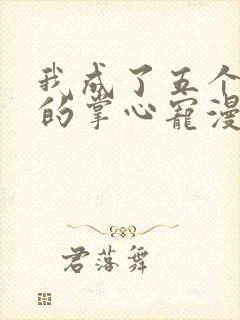 我成了五个
的掌心宠漫
君落舞